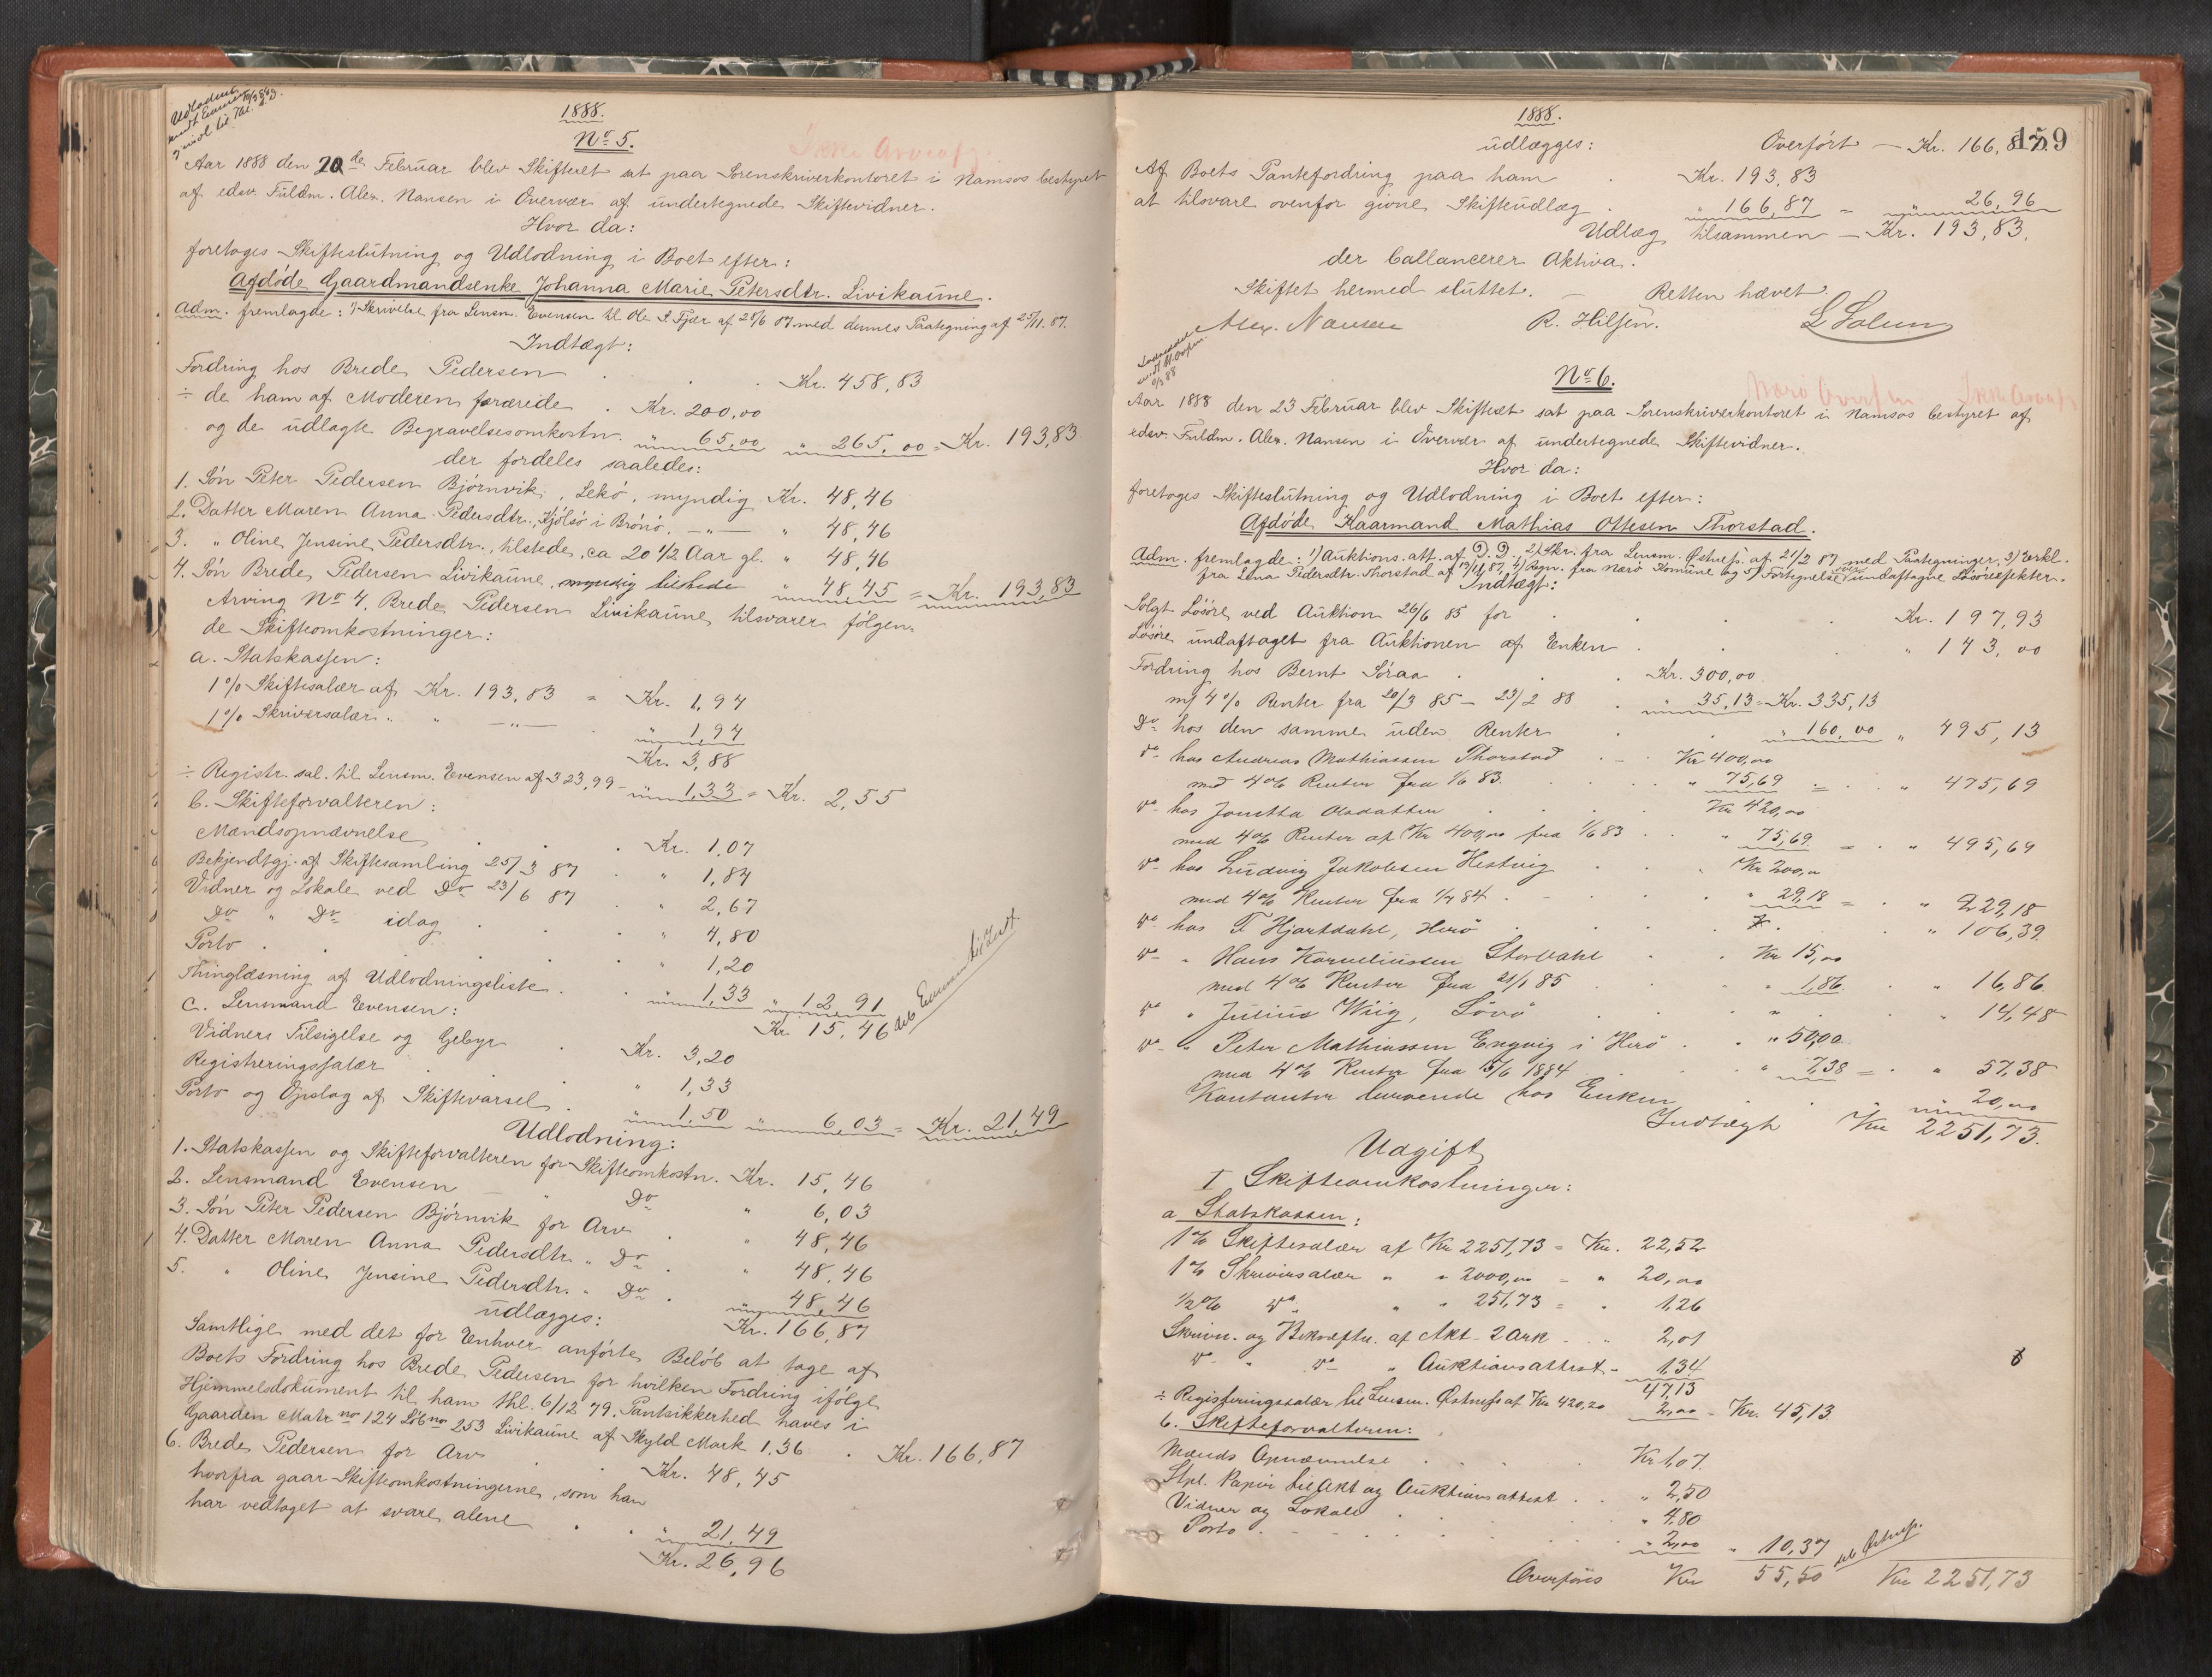 Udlodnl.
sendt Evensen 10/3 88
1888.
No 5.
Ikke Arveafg.
Aar 1888 den 20de Februar blev Skifteret sat paa Sorenskriverkontoret i Namsos bestyret
af edsv. Fuldm. Alex. Nansen i Overvær af undertegnede Skiftevidner.
Hvor da:
foretoges Skifteslutning og Udlodning i Boet efter:
Afdøde Gaardmandsenke Johanna Marie Petersdtr. Livikaune.
Adm. fremlagde: 1) Skrivelse fra Lensm. Evensen til Ole P. Fjær af 28/6 87 med dennes Paategning af 25/11 87.
Indtægt:
Fordring hos Brede Pedersen . . . Kr. 458,83
÷ de ham af Moderen forærede . Kr. 200,00
og de udlagte Begravelsesomkostn. " 65,00 " 265,00 = Kr. 193,83
der fordeles saaledes:
1. Søn Peter Pedersen Bjørnvik, Lekø, myndig Kr. 48,46
2. Datter Maren Anna Pedersdtr., Hjølsø i Brønø, —"— " 48,46
3. " Oline Jensine Pedersdtr., tilstede, ca 20 1/2 Aar gl. " 48,46
4. Søn Brede Pedersen Livikaune, myndig tilstede " 48,45 = Kr. 193,83
Arving No 4, Brede Pedersen Livikaune tilsvarer følgen-
de Skifteomkostninger:
a. Statskassen:
1% Skiftesalær af Kr. 193,83 = Kr. 1,94
1% Skriversalær " " —"— " 1,94
Kr. 3,88
÷ Registr. sal. til Lensm. Evensen af 323,99 - " 1,33 = Kr. 2,55
b. Skifteforvalteren:
Mændsopnævnelse . . . Kr. 1,07
Bekjendtgj. af Skiftesamling 25/3 87 . " 1,84
Vidner og Lokale ved Do 23/6 87 . " 2,67
Do " Do idag . . " 4,80
Porto . . . . " 1,20
Thinglæsning af Udlodningsliste . . " 1,33 " 12,91
Kr. 15,46
c. Lensmand Evensen:
Vidners Tilsigelse og Gebyr . Kr. 3,20
Registreringssalær . " 1,33
Porto og Opslag af Skiftevarsel . " 1,50 " 6,03 = Kr. 21,49
Udlodning:
1. Statskassen og Skifteforvalteren for Skifteomkostn. Kr. 15,46
2. Lensmand Evensen — " Do " 6,03
3. Søn Peter Pedersen Bjørnvik for Arv . " 48,46
4. Datter Maren Anna Pedersdtr. " Do . " 48,46
5. " Oline Jensine Pedersdtr. " Do . " 48,46
udlægges: Kr. 166,87
Samtlige med det for Enhver anførte Beløb at tage af
Boets Fordring hos Brede Pedersen for hvilken Fordring ifølge
Hjemmelsdokument til ham thl. 6/12 79, Pantsikkerhed haves i
Gaarden Matr no 124 Lb no 253 Livikaune af Skyld Mark 1,36 . Kr. 166,87
6. Brede Pedersen for Arv . . Kr. 48,45
hvorfra gaar Skifteomkostningerne, som han
har vedtaget at svare alene . . " 21,49
Kr. 26,96
159
1888.
udlægges: Overført — Kr. 166,87
Af Boets Pantefordring paa ham . Kr. 193,83
at tilsvare ovenfor givne Skifteudlæg . " 166,87 = " 26,96
Udlæg tilsammen — Kr. 193,83.
der ballancerer Aktiva.
Skiftet hermed sluttet. — Retten hævet.
Alex. Nansen R. Hilsen. L Solum
No 6.
Nærø Ikke Arveafg
Aar 1888 den 23 Februar blev Skifteret sat paa Sorenskriverkontoret i Namsos bestyret af
edsv. Fuldm. Alex. Nansen i Overvær af undertegnede Skiftevidner.
Hvor da:
foretoges Skifteslutning og Udlodning i Boet efter:
Afdøde Kaarmand Mathias Ottesen Thorstad.
Adm. fremlagde: 1) Auktions.att. af D. D., 2) Skr. fra Lensm. Østnes af 21/2 87 med Paategninger, 3) Erkl.
fra Lena Pedersdtr. Thorstad af 13/11 87, 4) Regn. fra Nærø Komune og 5) Fortegnelse over undaftagne Løsøreefekter.
Indtægt:
Solgt Løsøre ved Auktion 26/6 85 for . . . Kr. 197,93
Løsøre undaftaget fra Auktionen af Enken . . " 143,00
Fordring hos Bernt Søraa . . Kr. 300,00
m/ 4% Renter fra 20/3 85 – 23/2 88 . " 35,13 = Kr. 335,13
Do hos den samme uden Renter . . " 160,00 " 495,13
do hos Andreas Mathiassen Thorstad . - Kr 400,00
med 4% Renter fra 1/6 83. . . " 75,69 = . " 475,69
do hos Jonetta Olsdatter . . Kr 420,00
med 4% Renter af Kr 400,00 fra 1/6 83 . . " 75,69 = . " 495,69
do hos Ludvig Jakobsen Hestvig . . Kr 200,00
med 4% Renter fra 1/7 84 . . " 29,18 = . " 229,18
do hos T. Hjortdahl, Herø . . . " 106,39
do " Hans Korneliussen Storvahl . . Kr 15,00
med 4% Renter fra 21/1 85 . . " 1,86 . " 16,86
do " Julius Wiig, Løvø . " . " 14,48
do " Peter Mathiassen Engvig i Herø . " 50,00
med 4% Renter fra 15/6 1884 . " 7,38 = . " 57,38
Kontanter beroende hos Enken . . " 20,00
Indtægt Kr 2251,73.
Udgift
I Skifteomkostninger:
a Statskassen:
1% Skiftesalær af Kr 2251,73 = Kr. 22,52
1% Skriversalær " " 2000,00 = " 20,00
1/2% do " " 251,73 = " 1,26
Skrivn. og Bekræftn. af Akt - 2 Ark . . " 2,01
do " do " Auktionsattest - 1,34
47,13
÷ Registreringssalær til Lensm. Østnes af Kr 420,20 2,00 - Kr. 45,13
b. Skifteforvalteren:
Mænds Opnævnelse . . . Kr 1,07
Stpl. Papir til Akt og Auktionsattest . . " 2,50
Vidner og Lokale . . . " 4,80
Porto . . . . " 2,00 " 10,37
Overføres Kr 55,50 Kr 2251,73